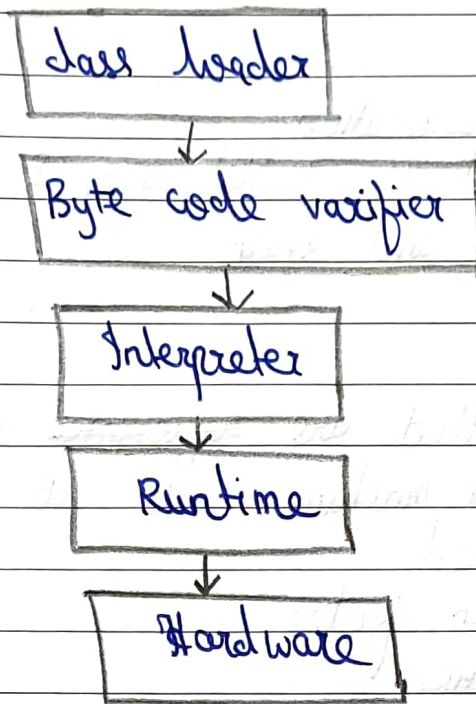 class loader
Byte code varifier
Interpreter
Runtime
Hardware